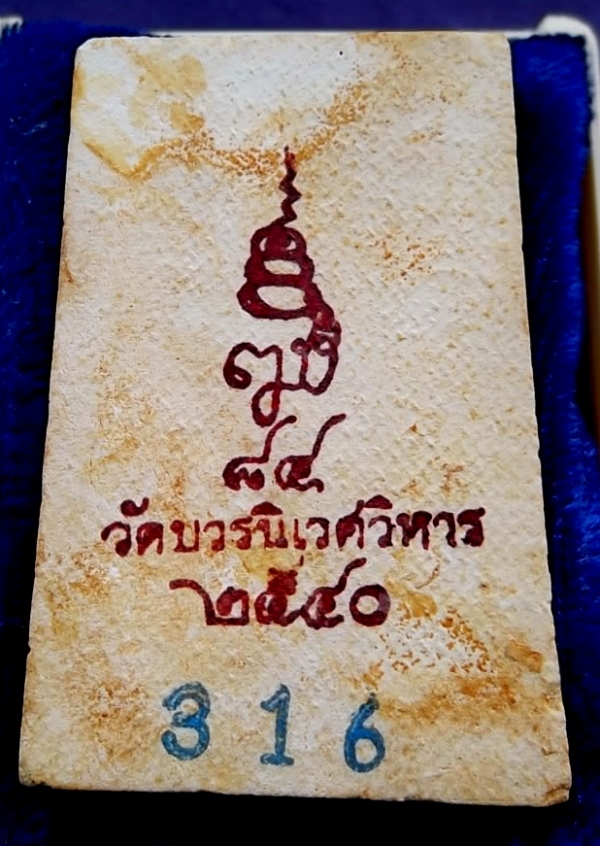 ๘๔
วัดบวรนิเวศวิหาร
๒๕๔๐
316